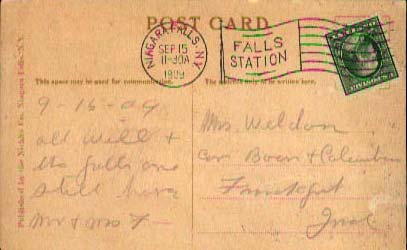 POST CARD
NIAGARA FALLS, N.Y.
SEP 15
11-30A
1909
FALLS
STATION
This space may be used for communication.
The address only to be written here.
9-15-09
all well &
the falls are
still here
Mr & Mrs F
Mrs. Weldon
Cor Boon & Columbia
Frankfort
Ind